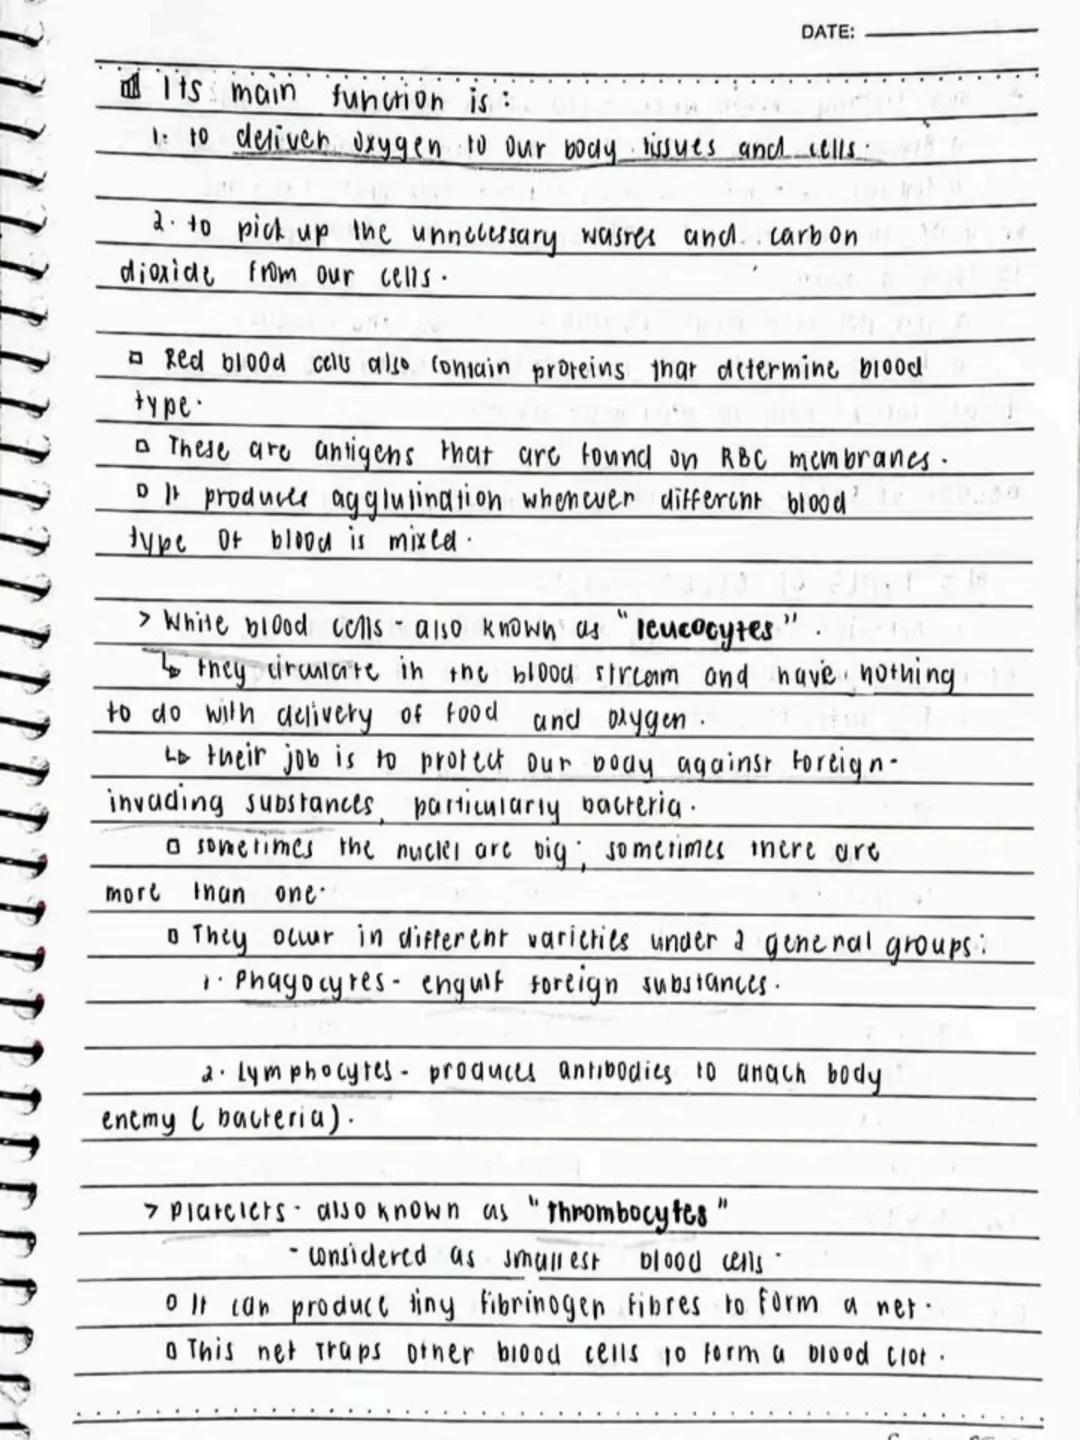 DATE:
Its main function is:
1. to deliver oxygen to our body tissues and cells.
2. to pick up the unnecessary wastes and carbon
dioxide from our cells.
Red blood cells also contain proteins that determine blood
type.
These are antigens that are found on RBC membranes.
It produces agglutination whenever different blood
type of blood is mixed.
> White blood cells - also known as "leucocytes".
↳ they circulate in the blood stream and have nothing
to do with delivery of food and oxygen.
↳ their job is to protect our body against foreign-
invading substances, particularly bacteria.
sometimes the nuclei are big; sometimes there are
more than one.
They occur in different varieties under 2 general groups:
1. Phagocytes - engulf foreign substances.
2. Lymphocytes - produces antibodies to attach body
enemy (bacteria).
> Platelets - also known as "thrombocytes"
- considered as smallest blood cells.
It can produce tiny fibrinogen fibres to form a net.
This net traps other blood cells to form a blood clot.